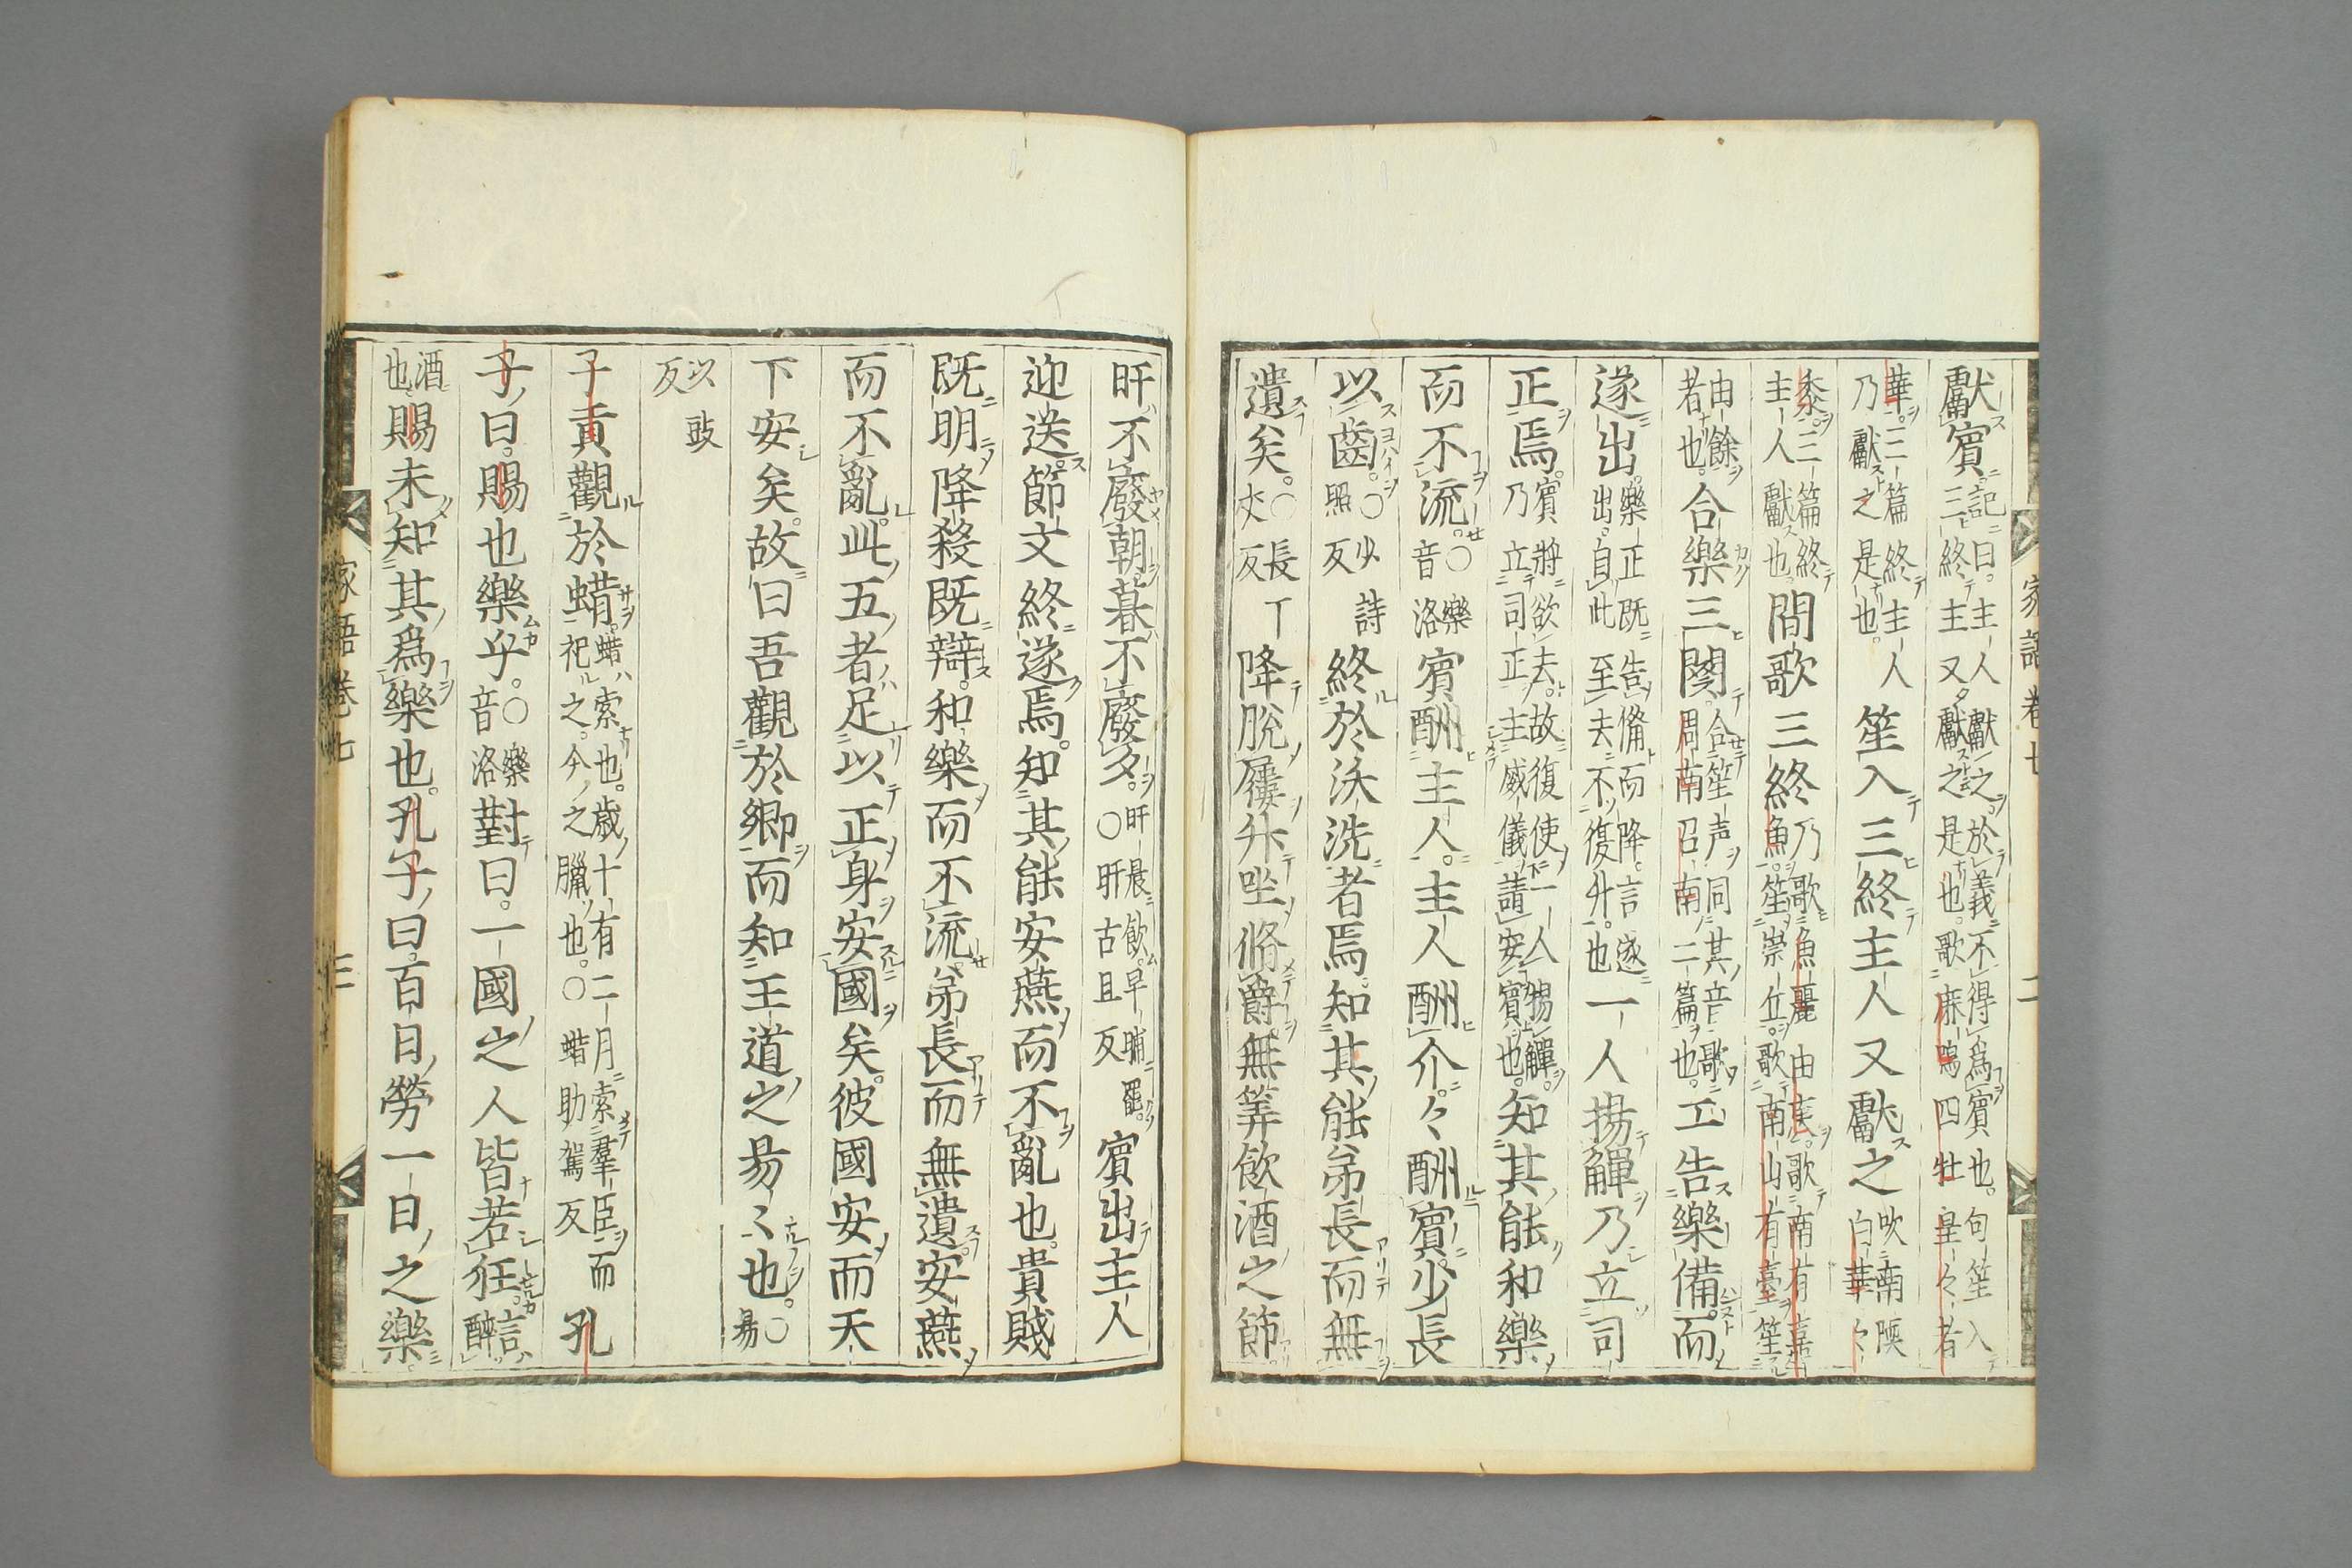 獻賓記曰。主人獻之於義不得爲賓也。句笙入
三終主又獻之是也。歌鹿鳴四牡皇々者
華。三篇終主人
乃獻之是也。笙入三終主人又獻之吹南陔
白華々
黍。三篇終
主人獻也。間歌三終乃歌魚麗由庚。歌南有嘉
魚。笙崇丘。歌南山有臺。笙
由餘
者也。合樂三闋。合笙声同其音歌
周南召南二篇也。工告樂備。而
遂出。樂正既告備而降。言遂
出。自此至去不復升。也一人揚觶乃立司
正焉。賓將欲去。故復使一人揚觶。
乃立司正主威儀請安賓也。知其能和樂
而不流。○樂
音洛賓酬主人。主人酬介。々酬賓。少長
以齒。○少詩
照反終於沃洗者焉。知其能弟長而無
遺矣。○長丁
丈反降脱屨升坐脩爵。無筭飲酒之節
旰不廢朝。暮不廢夕。旰晨飲。早晡罷。
○旰古旦反賓出主人
迎送。節文終遂焉。知其能安燕而不亂也。貴賤
既明降殺既辯。和樂而不流。弟長而無遺。安燕
而不亂。此五者足以正身安國矣。彼國安而天
下安矣。故曰吾觀於鄉而知王道之易〻也。○
易
以豉
反
子貢觀於蜡。蜡索也。歲十有二月索羣臣而
祀之。今之臘也。○蜡助駕反孔
子曰。賜也樂乎。○樂
音洛對曰。一國之人皆若狂。言
醉
酒
也賜未知其爲樂也。孔子曰。百日勞一日之樂。
家語卷七　二
家語卷七　三